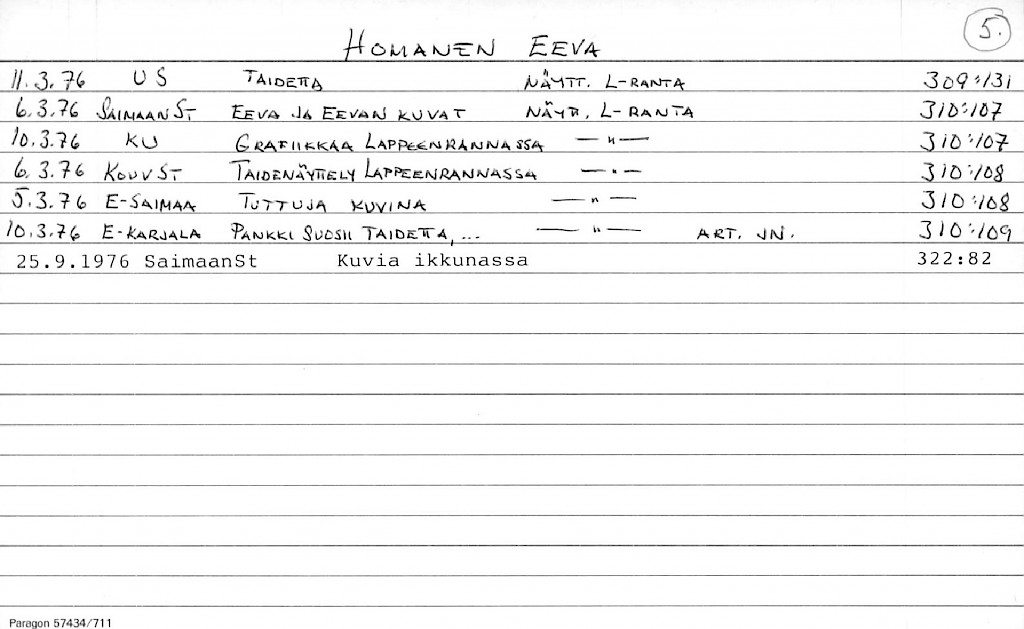 5.
HOMANEN EEVA
11.3.76 US TAIDETTA NÄYTT. L-RANTA 309:131
6.3.76 SAIMAANST EEVA JA EEVAN KUVAT NÄYTT. L-RANTA 310:107
10.3.76 KU GRAFIIKKAA LAPPEENRANNASSA —"— 310:107
6.3.76 KOUVST TAIDENÄYTTELY LAPPEENRANNASSA —"— 310:108
5.3.76 E-SAIMAA TUTTUJA KUVINA —"— 310:108
10.3.76 E-KARJALA PANKKI SUOSII TAIDETTA, ... —"— ART. JN. 310:109
25.9.1976 SaimaanSt Kuvia ikkunassa 322:82
Paragon 57434/711